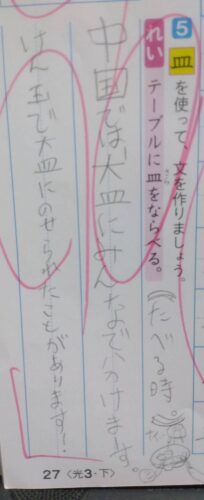 5 皿を使って、文を作りましょう。
れい テーブルに皿をならべる。
(たべる時。)
中国では、大皿にみんなで分けます。
けん玉で大皿にのせられたことがあります!
27 〈光3・下〉